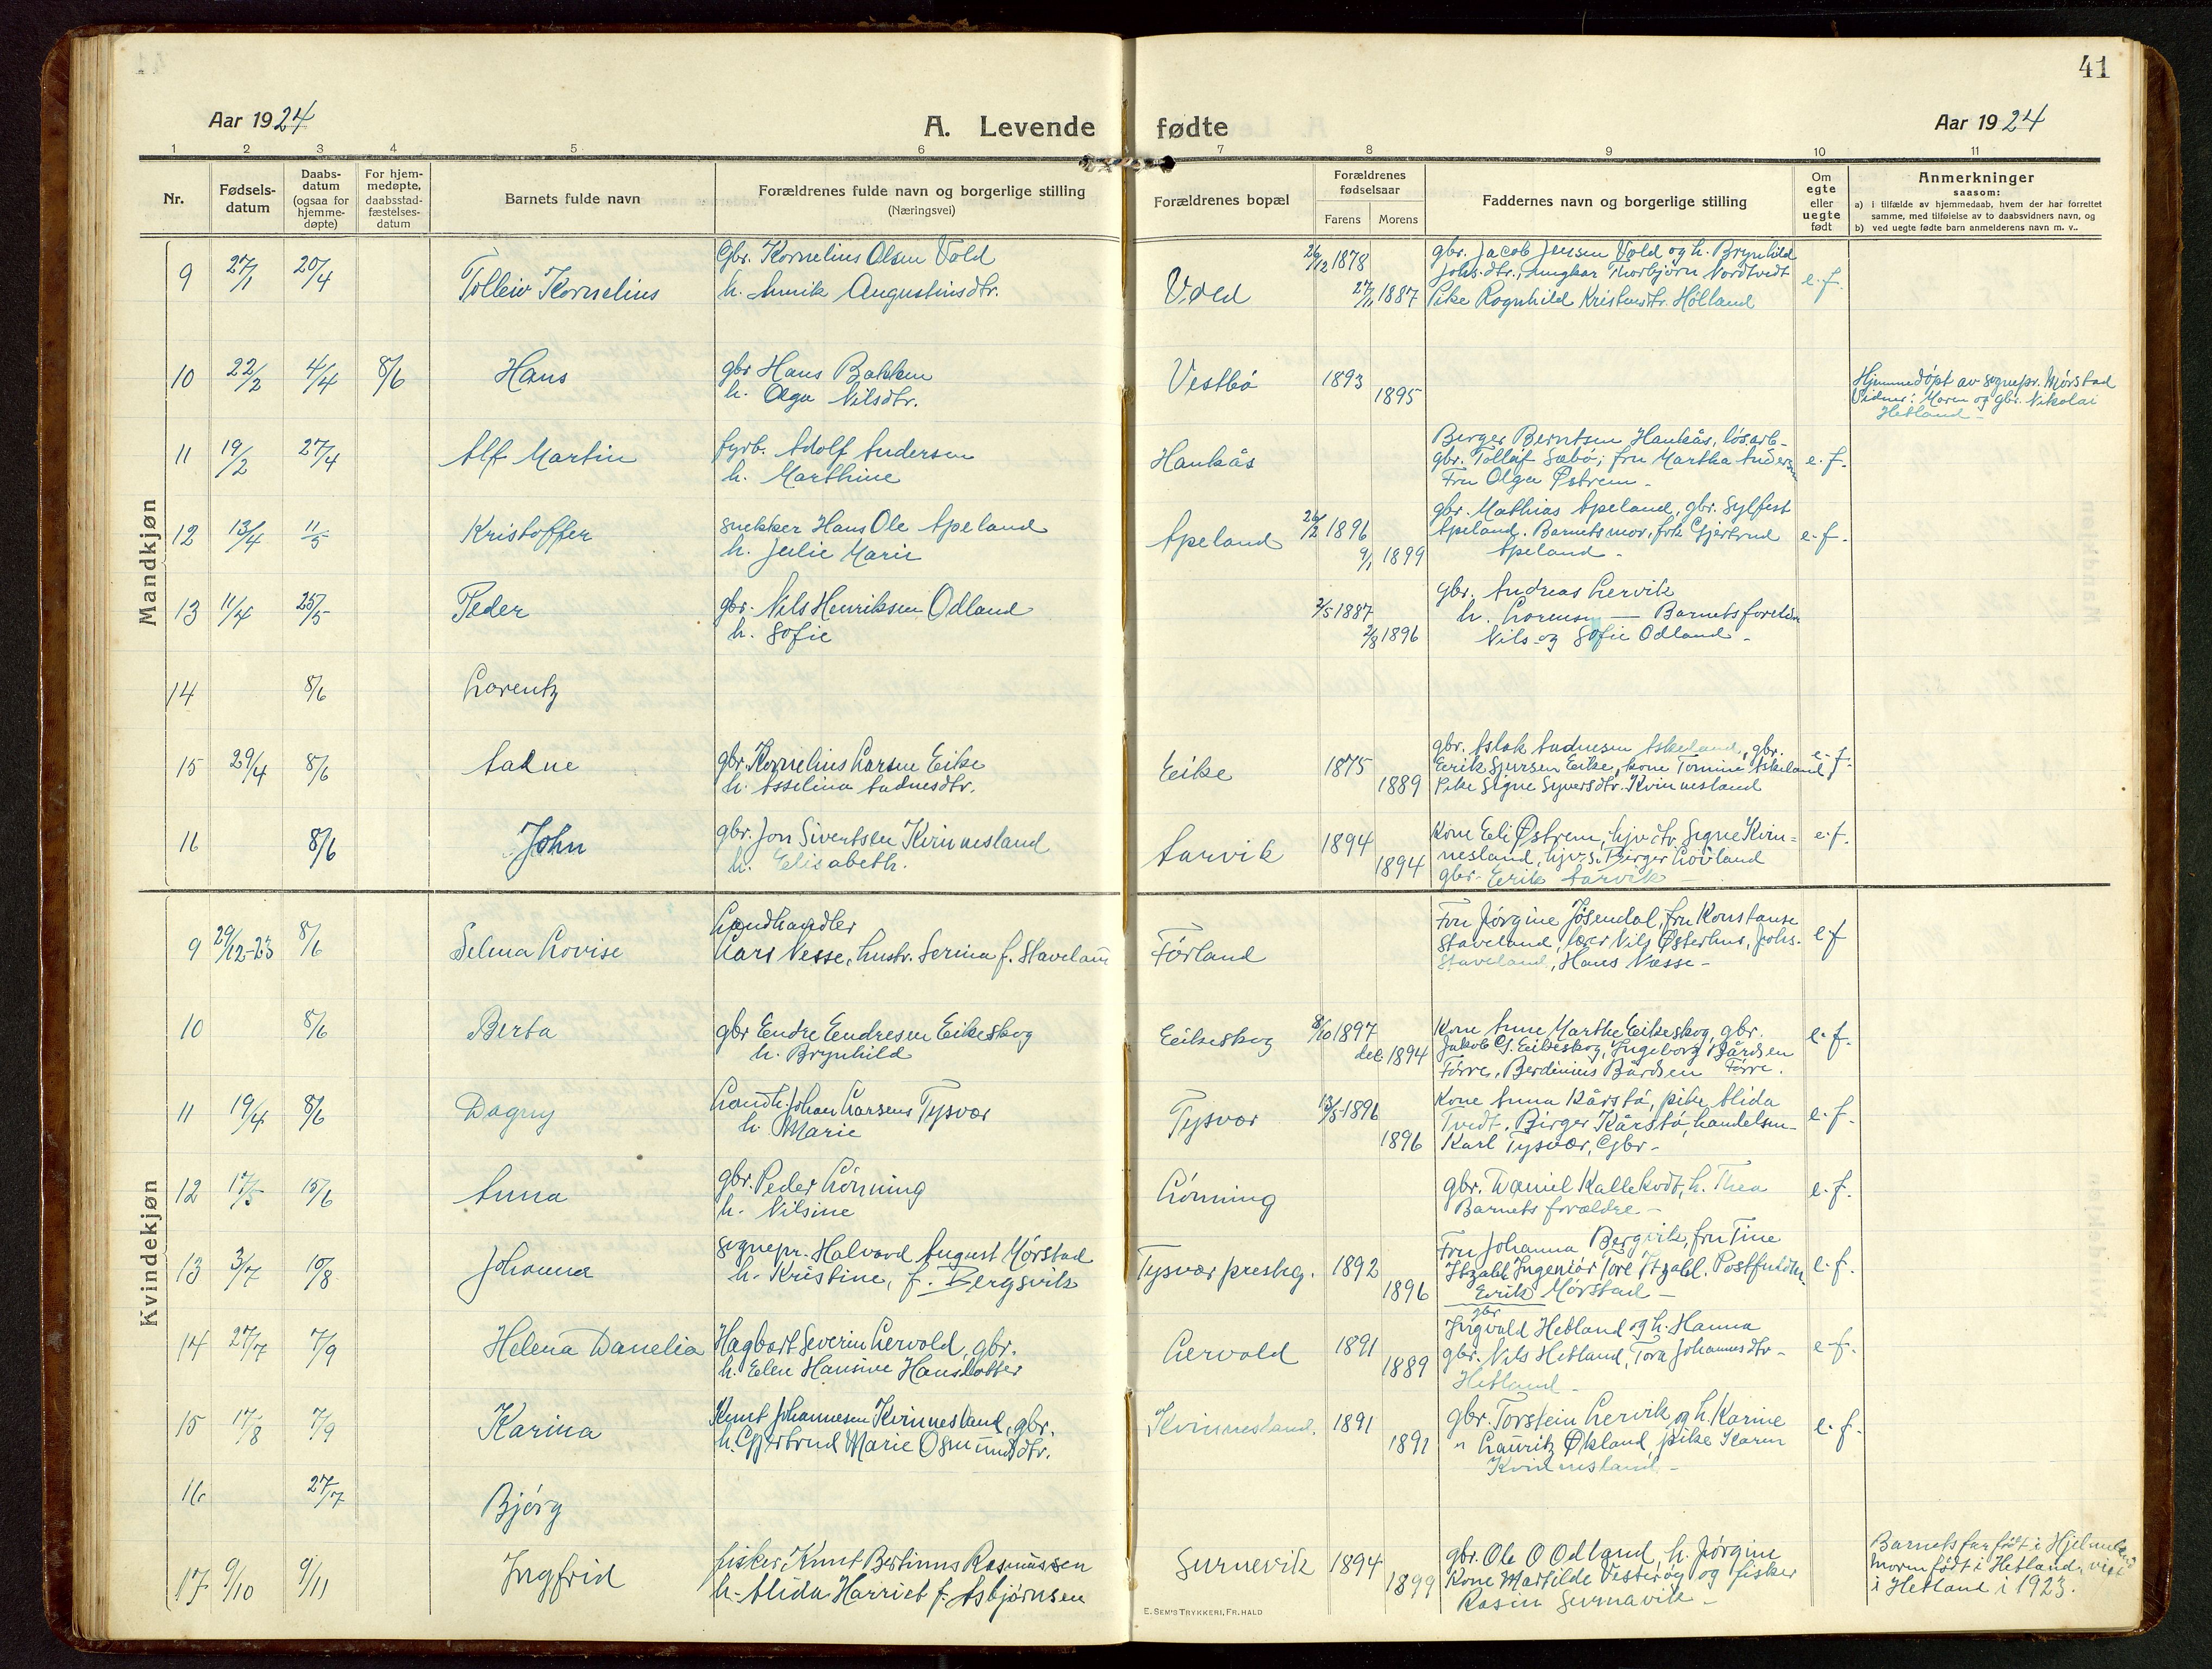 41
Aar 1924
A. Levende fødte
Aar 1924
1 2 3 4 5 6 7 8 9 10 11
Nr.
Fødsels-
datum
Daabs-
datum
(ogsaa for
hjemme-
døpte)
For hjem-
medøpte,
daabsstad-
fæstelses-
datum
Barnets fulde navn
Forældrenes fulde navn og borgerlige stilling
(Næringsvei)
Forældrenes bopæl
Forældrenes
fødselsaar
Farens Morens
Faddernes navn og borgerlige stilling
Om
egte
eller
uegte
født
Anmerkninger
saasom:
a) i tilfælde av hjemmedaab, hvem der har forrettet
samme, med tilføielse av to daabsvidners navn, og
b) ved uegte fødte barn anmelderens navn m. v..
Mandkjøn
9 27/1 20/4 Tolleiv Kornelius
Gbr. Kornelius Olsen Vold
h. Augustinsdtr.
Vold
26/2 1878
27/1 1887
gbr. Jacob Jensen Vold og h. Brynhild
Johs.dtr., ungkar Thorbjørn Nordtvedt
Pike Ragnhild Kristensdtr. Hölland
e. f.
10 22/2 4/4 8/6 Hans
gbr Hans Bakken
h. Olga Nilsdtr.
Vestbø
1893
1895
Hjemmedöpt av sognepr. Mørstad
Vidner: Moren og gbr. Nikolai
Hetland -
11 19/2 27/4 Alf Martin
fyrb. Adolf Andersen
h. Marthine
Haukås
Birger Berntsen Haukås, løsarb-
gbr. Tollef Sæbö; fru Martha Anders
Fru Olga Østrem -
e. f.
12 13/4 11/5 Kristoffer
snekker Hans Ole Apeland
h. Julie Marie
Apeland
26/2 1896
9/1 1899
gbr. Mathias Apeland, gbr. Sylfest
Apeland. Barnets mor, frk Gjertrud
Apeland -
e. f.
13 11/4 25/5 Peder
gbr. Nils Henriksen Odland
h. Sofie
2/5 1887
2/8 1896
gbr. Andreas Lervik
h. Lorense — Barnets foreldre
Nils og Sofie Odland -
14 8/6 Lorentz
15 29/4 8/6 Aadne
gbr. Kornelius Larsen Eike
h. Asselina Aadnesdtr.
Eike
1875
1889
gbr. Aslak Aadnesen Askeland, gbr.
Eerik Sjursen Eike, kone Tomine Askeland
Pike Signe Syversdtr. Kvinnesland
e. f.
16 8/6 John
gbr. Jon Sivertsen Kvinnesland
h. Elisabeth.
Aarvik
1894
1894
Kone Eli Østrem, hjvdtr. Signe Kvin=
nesland, hjvs. Birger Lovland
gbr. Eerik Aarvik -
e. f.
Kvindekjøn
9 29/12-23 8/6 Selma Lovise
Landhandler
Lars Nesse, hustr. Serina f. Staveland
Førland
Fru Jørgine Jøsendal, fru Konstanse
Staveland, lær Nils Østerhus, Johs.
Staveland, Hans Næsse -
e f
10 8/6 Berta
gbr Endre Endresen Eikeskog
h. Brynhild
Eeikeskog
8/10 1897
1894
Kone Anne Marthe Eikeskog, gbr.
Jakob Eikeskog, Ingeborg Bårdsen
Førre, Berdinius Bårdsen Førre.
e. f.
11 19/4 8/6 Dagny
Landh. Johan Larsens Tysvær
h. Marie
Tysvær
13/5 1896
1896
Kone Anna Kårstø, pike Alida
Tvedt, Birger Kårstø, handelsm-
Karl Tysvær, Gbr -
e. f.
12 17/5 15/6 Anna
gbr. Peder Lönning
h. Nilsine
Lönning
gbr. Daniel Kallekodt, h. Thea
Barnets forældre -
e. f.
13 3/7 10/8 Johanna
Sognepr. Halvard August Mørstad
h. Kristine, f. Bergsvik
Tysvær prestg.
1892
1896
Fru Johanna Bergvik, fru Tine
Ingeniør Tore Postfuldm.
Eerik Mørstad -
e. f.
14 27/7 7/9 Helena Danelia
Hagbart Severin Lervold, gbr.
h. Elen Hansine Hansdotter
Lervold
1891
1889
gbr
Ingvald Hetland og h. Hanna
gbr. Nils Hetland, Tora Johannesdtr -
Hetland -
e. f.
15 17/8 7/9 Karina
Knut Johannesen Kvinnesland, gbr.
h. Gjertrud Marie Osmundsdtr.
Kvinnesland.
1891
1891
gbr. Torstein Lervik og h. Karine
" Lauritz Økland, pike Karen
Kvinnesland -
e. f.
16 27/7 Bjørg
17 9/10 9/11 Ingfrid
fisker Knut Bertinus Rasmussen
h. Alida Harriet f. Asbjørnsen
Surnevik
1894
1899
gbr. Ole O Odland, h. Jørgine
Kone Martilde Vesterøy og fisker
Rasm Surnavik -
Barnets far født i Hjelmeland
moren født i Hetland, viet
i Hetland i 1923.
E. SEM'S TRYKKERI, FR.HALD